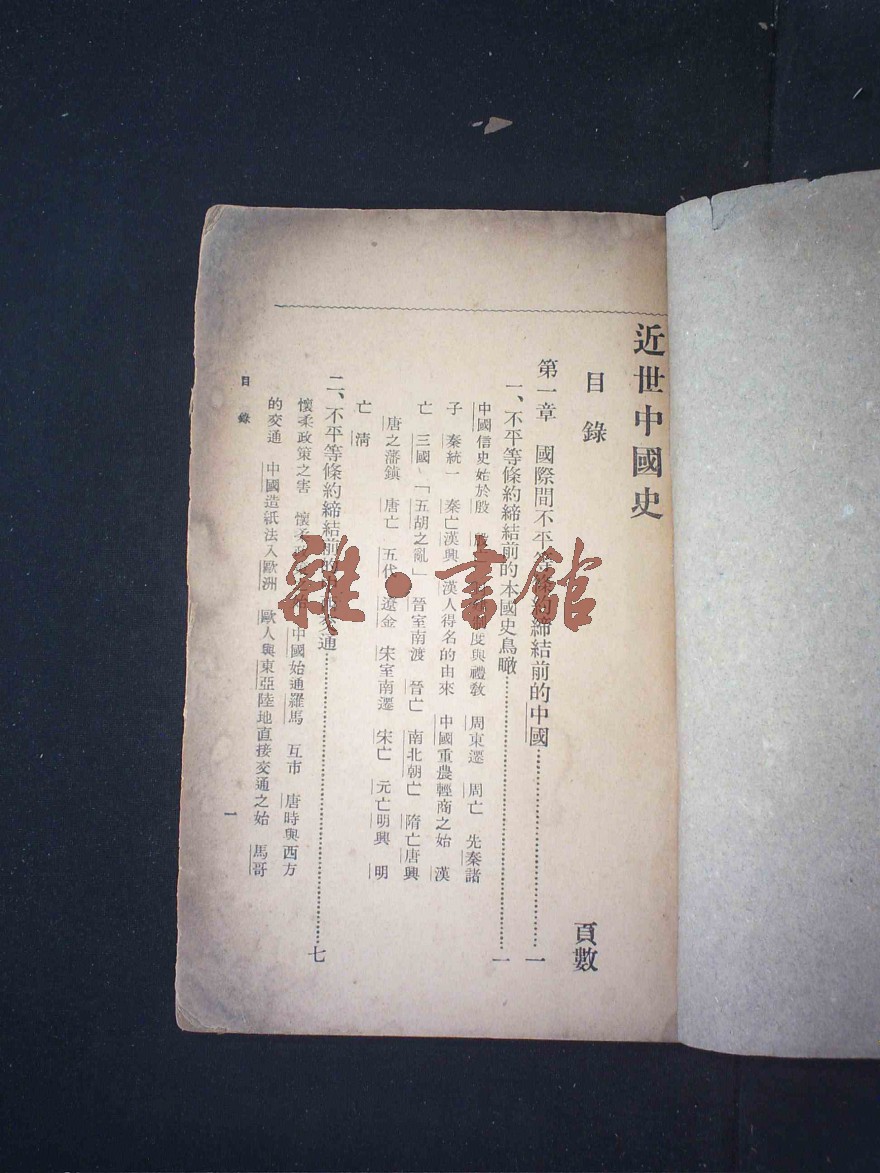 近世中國史
目錄
頁數
第一章 國際間不平等條約締結前的中國……一
一、不平等條約締結前的本國史鳥瞰……一
中國信史始於殷 度與禮敎 周東遷 周亡 先秦諸
子 秦統一 秦亡漢興 漢人得名的由來 中國重農輕商之始 漢
亡 三國 「五胡之亂」 晉室南渡 晉亡 南北朝亡 隋亡唐興
唐之藩鎮 唐亡 五代 遼金 宋室南遷 宋亡 元亡明興 明
亡 清
二、不平等條約締結前的 交通……七
懷柔政策之害 懷柔 中國始通羅馬 互市 唐時與西方
的交通 中國造紙法入歐洲 歐人與東亞陸地直接交通之始 馬哥
目錄
一
雜·書館